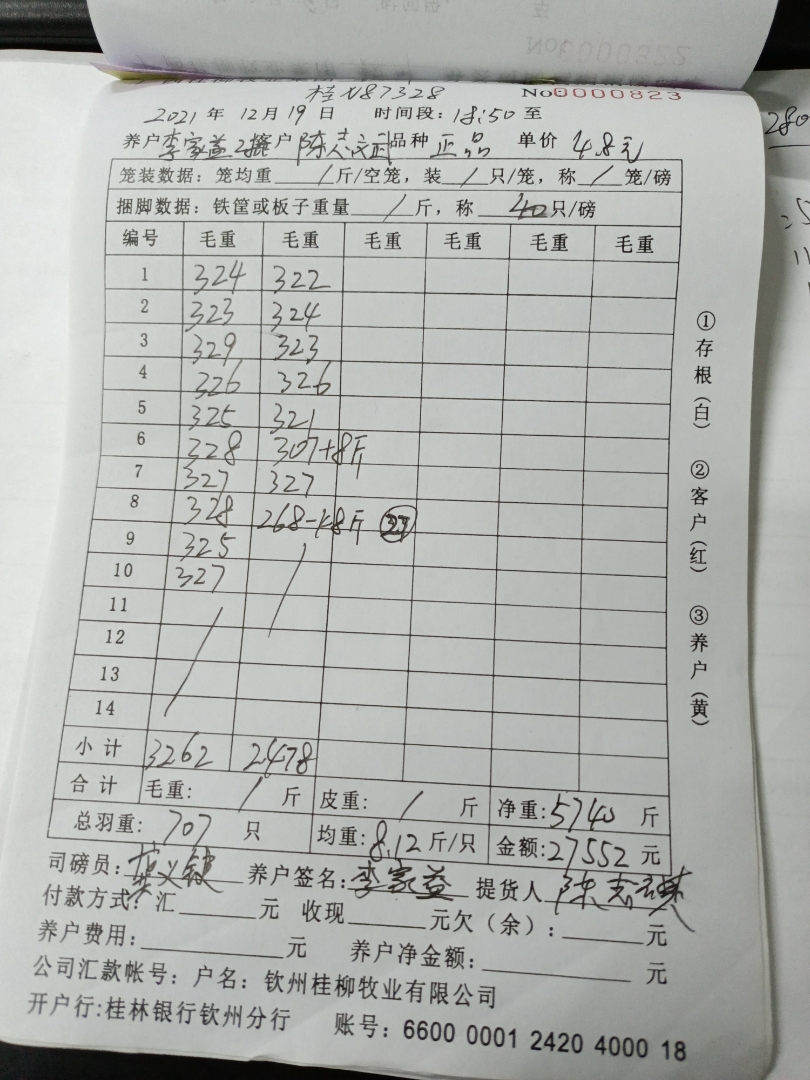 No 0000822
桂N87328 No 0000823
2021年 12月 19日 时间段: 18:50 至
养户 李家益 客户 陈志 品种 正品 单价 4.8元
笼装数据: 笼均重 / 斤/空笼, 装 / 只/笼, 称 / 笼/磅
捆脚数据: 铁筐或板子重量 / 斤, 称 40 只/磅
编号 毛重 毛重 毛重 毛重 毛重 毛重
1 324 322
2 323 324
3 329 323
4 326 326
5 325 321
6 328 307+8斤
7 327 327
8 328 268-1.8斤 27
9 325 /
10 327
11 /
12
13
14
小计 3262 2478
合计 毛重: / 斤 皮重: / 斤 净重: 5740 斤
总羽重: 707 只 均重: 8.12 斤/只 金额: 27552 元
司磅员: 养户签名: 李家益 提货人 陈志
付款方式: 汇 元 收现 元欠(余): 元
养户费用: 元 养户净金额: 元
公司汇款帐号: 户名: 钦州桂柳牧业有限公司
开户行:桂林银行钦州分行 账号: 6600 0001 2420 4000 18
①存根(白) ②客户(红) ③养户(黄)
280